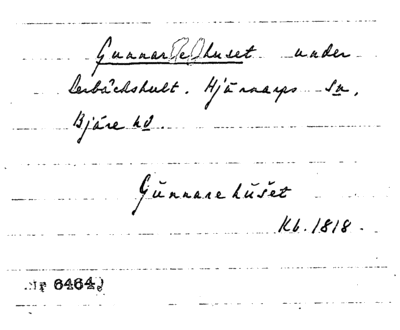 Gunnar(e)huset under
Derbäckshult. Hjärnarps sn,
Bjäre hd.
Gŭnnare hŭset
Kb. 1818.
Nr 6464